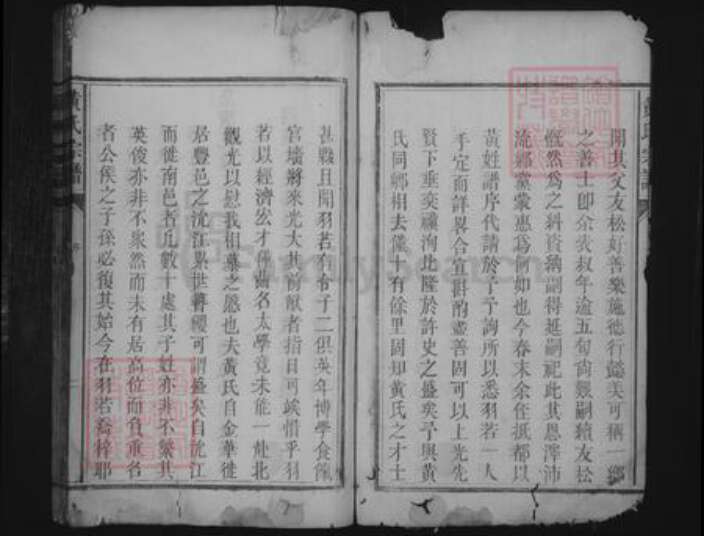 聞其父友松好善樂施德行懿美可稱一鄉
之善士即余弟叔年逾五旬尚艱嗣續友松
慨然爲之糾資納副得延嗣祀此其恩澤沛
流鄉黨蒙惠爲何如也今春末余任抵都以
黃姓譜序代請於予予詢所以悉羽若一人
手定而詳畧合宜斟酌盡善固可以上光先
賢下垂奕禩洵比隆於許史之盛矣予與黃
氏同鄉相去僅十有餘里固知黃氏之才士
甚夥且聞羽若有令子二俱英年博學食餼
宮墻將來光大其前猷者指日可竢惜乎羽
若以經濟宏才僅齒名太學竟未能一赴北
觀光以慰我相慕之懇也夫黃氏自金華徙
居豐邑之沈江累世簪纓可謂盛矣自沈江
而徙南邑者凡數十處其子姓亦非不繁其
英俊亦非不衆然而未有居高位而負重名
者公侯之子孫必復其始今在羽若喬梓耶
黃氏宗譜
FamilySearch